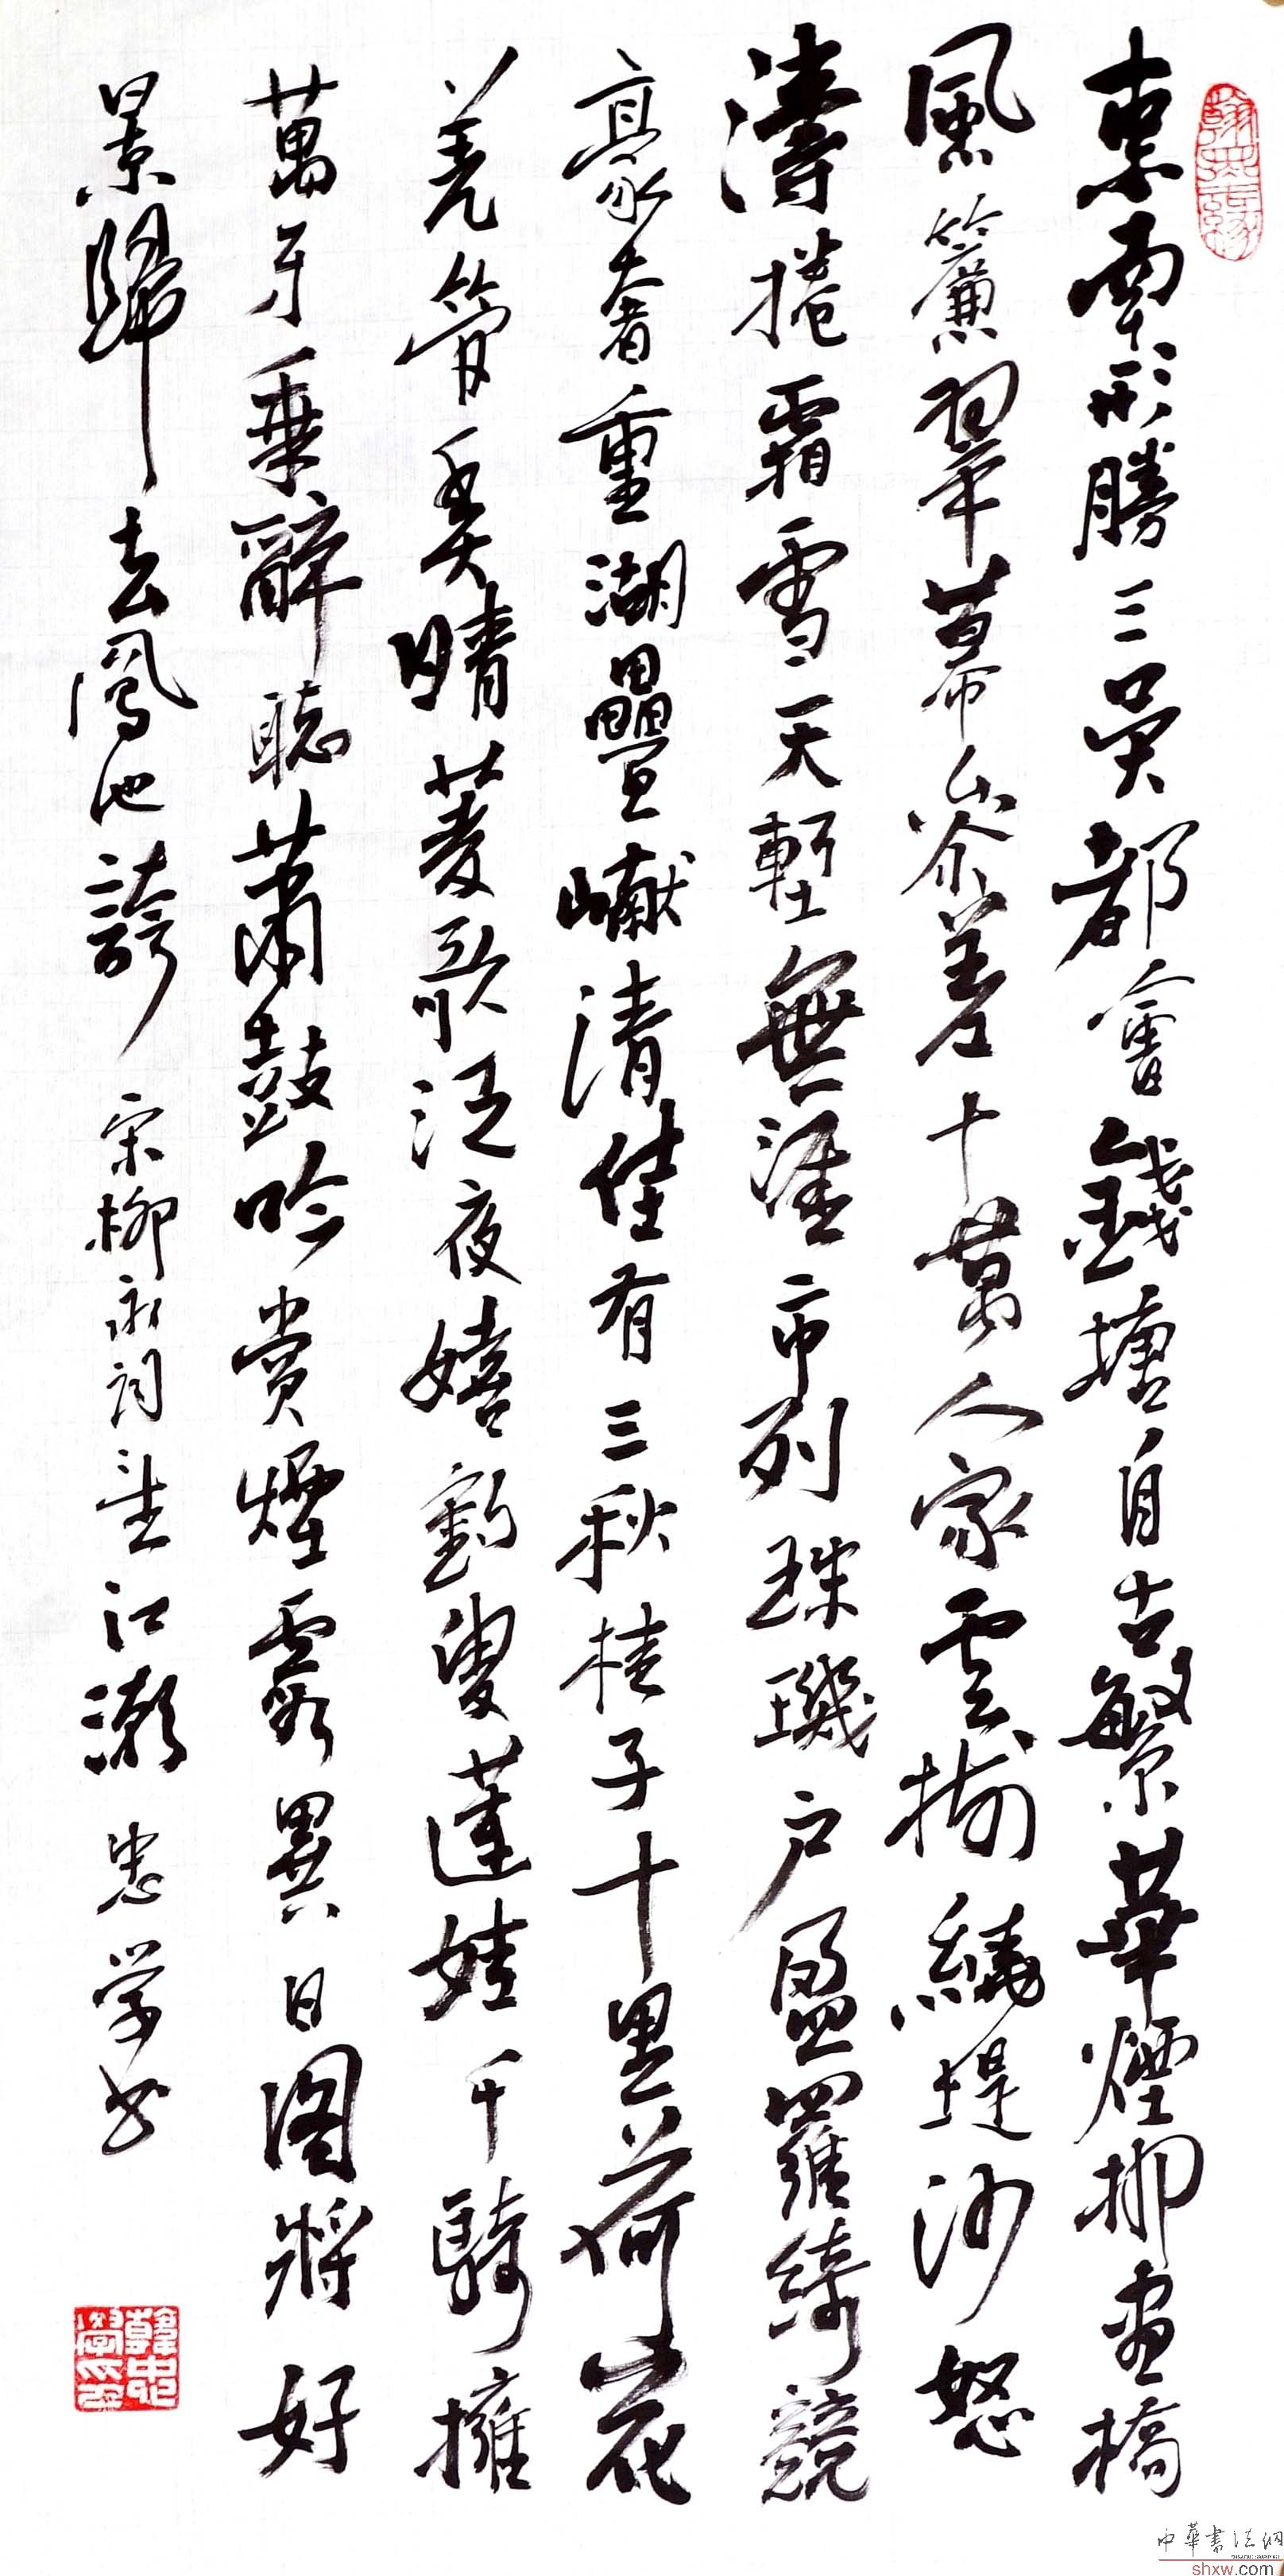 東南形勝三吳都會錢塘自古繁華煙柳画橋
風簾翠幕參差十萬人家雲樹繞堤沙怒
濤捲霜雪天塹無涯市列珠璣户盈羅綺競
豪奢重湖疊巘清佳有三秋桂子十里荷花
羌管弄晴菱歌泛夜嬉嬉釣叟蓮娃千騎擁
萬牙乘醉聽萧鼓吟赏煙霞異日图將好
景歸去鳳池誇 宋柳永词望江潮 忠学书
翰墨緣
韓忠學印
中華書法網
shxw.com